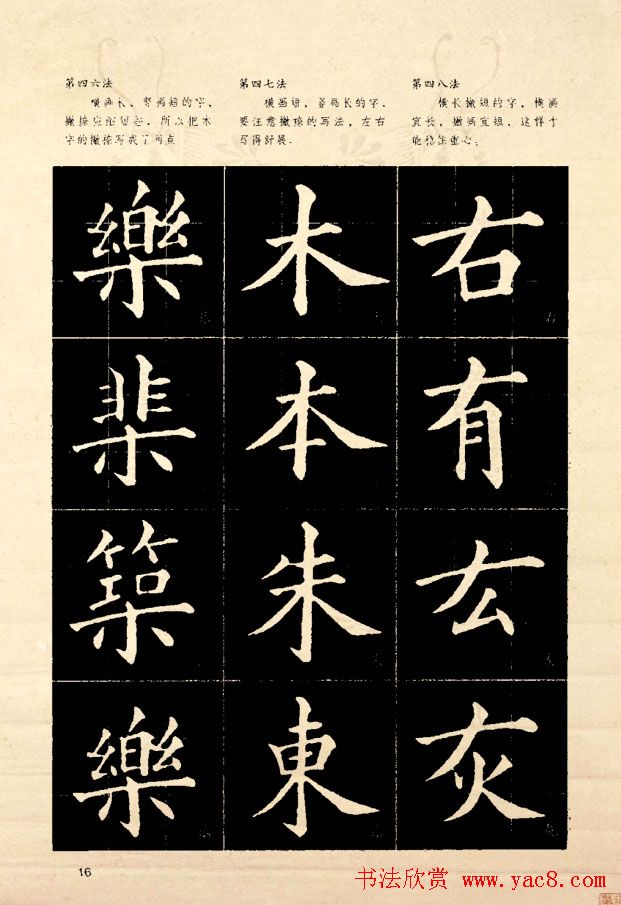 第四六法
横画长、竖画短的字，
撇捺应缩短些。所以把木
字的撇捺写成了两点
第四七法
横画短、竖画长的字，
要注意撇捺的写法，左右
写得舒展。
第四八法
横长撇短的字，横画
宜长，撇画宜短，这样才
能稳住重心。
樂 木 右
棐 本 有
築 朱 厷
樂 東 灰
16
书法欣赏 www.yac8.com